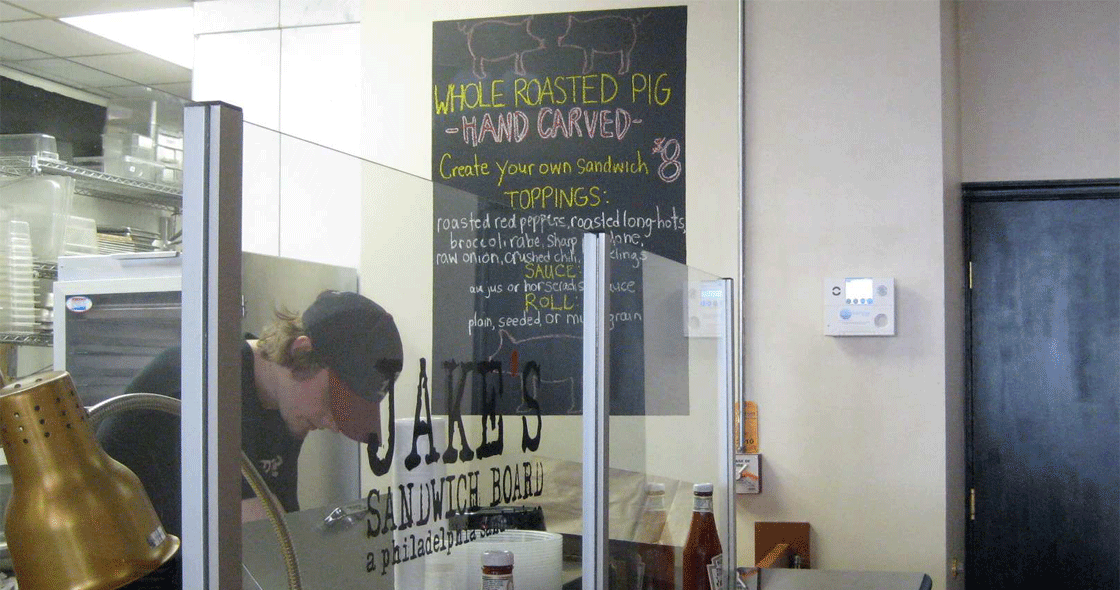 WHOLE ROASTED PIG
-HAND CARVED-
Create your own sandwich $8
TOPPINGS:
roasted red peppers, roasted long-hots,
broccoli rabe, sharp
raw onion, crushed chili,
SAUCE:
au jus or horseradish
ROLL:
plain, seeded, or
grain
JAKE'S
SANDWICH BOARD
a philadelphia